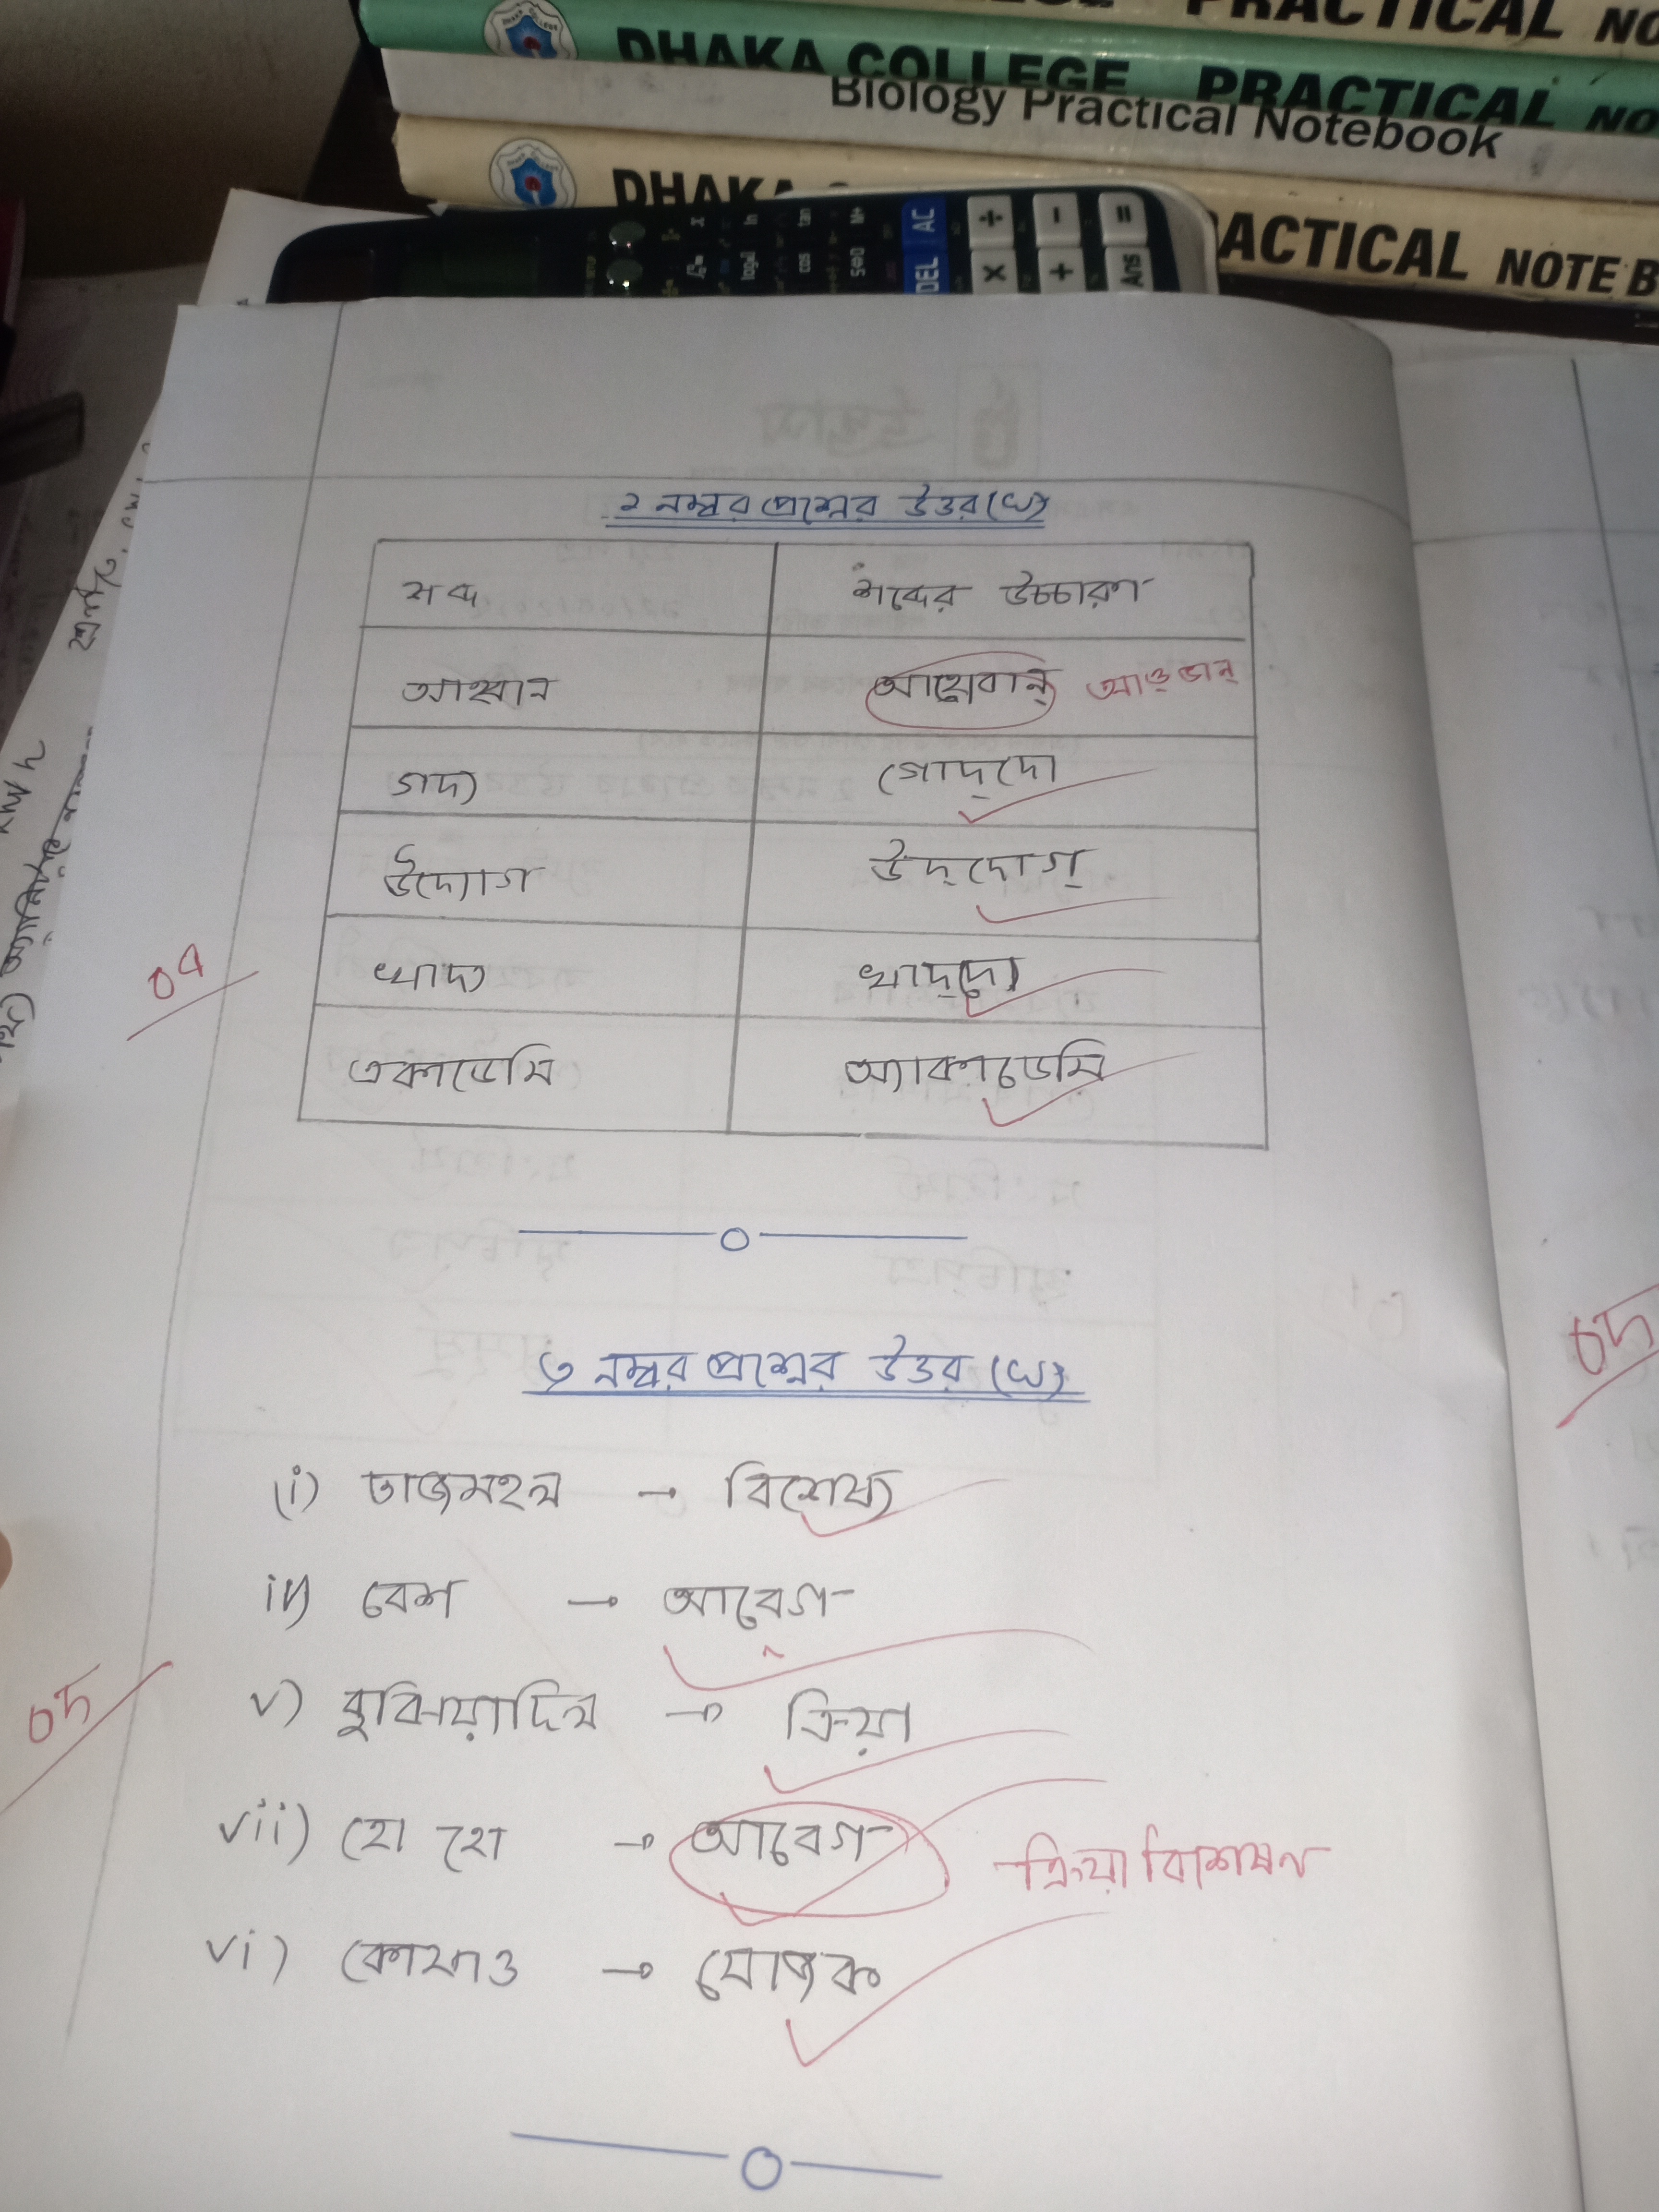 PRACTICAL NO
DHAKA COLLEGE PRACTICAL NO
Biology Practical Notebook
DHAKA
PRACTICAL NOTE B
DEL AC
× ÷
+ −
Ans =
২ নম্বর প্রশ্নের উত্তর (খ)
শব্দ শব্দের উচ্চারণ
আহ্বান আহোবান্ আও্ভান্
গদ্য গোদ্‌দো
উদ্যোগ উদ্‌দোগ্
০৪
খাদ্য খাদ্‌দো
একাডেমি অ্যাকাডেমি
৩ নম্বর প্রশ্নের উত্তর (খ)
০৫
(i) তাজমহল → বিশেষ্য
ii) বেশ → আবেগ
০৫
v) বুঝিয়াদিল → ক্রিয়া
vii) হো হো → আবেগ ক্রিয়া বিশেষণ
vi) কোথাও → যোজক